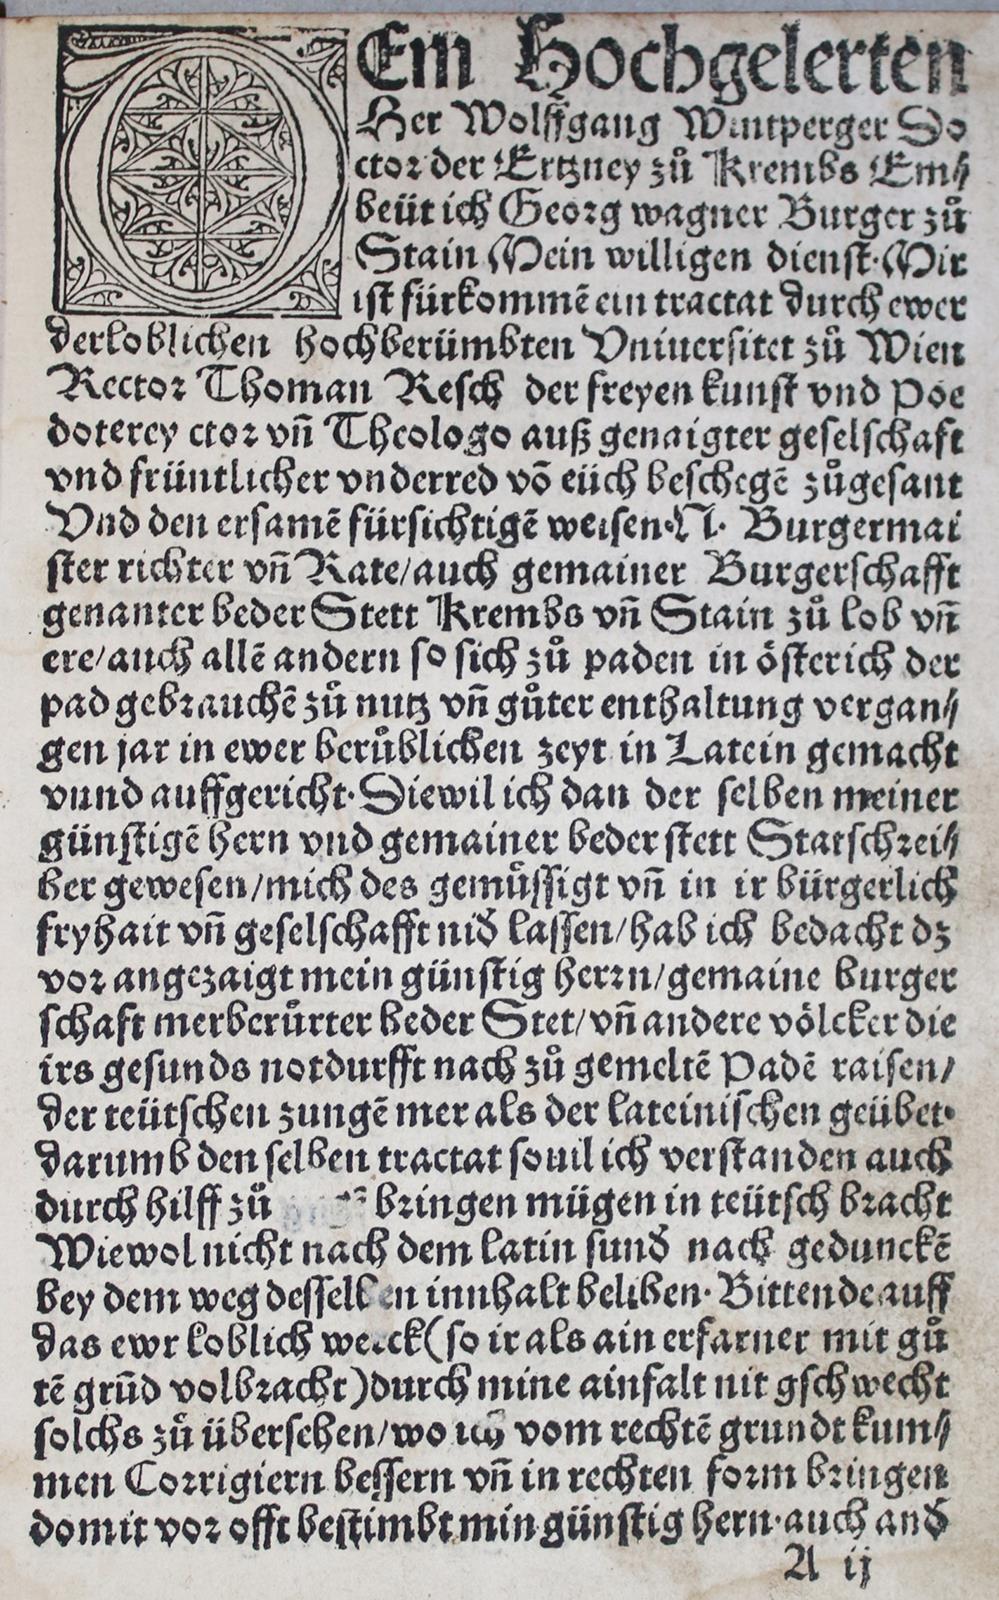 DEm Hochgelerten
Her Wolffgang Wintperger Do
ctor der Ertzney zů Krembs Em⸗
beüt ich Georg wagner Burger zů
Stain Mein willigen dienst· Mir
ist fürkommē ein tractat durch ewer
der loblichen hochberümbten Vniuersitet zů Wien
Rector Thoman Resch der freyen kunst vnd Poe
doterey ctor vñ Theologo auß genaigter geselschaft
vnd früntlicher vnderred võ eüch beschegē zůgesant
Vnd den ersamē fürsichtigē weisen·N· Burgermai
ster richter vñ Rate/auch gemainer Burgerschafft
genanter beder Stett Krembs vñ Stain zů lob vñ
ere/auch allē andern so sich zů paden in österich der
pad gebrauchē zů nutz vñ gůter enthaltung vergan⸗
gen jar in ewer berůblichen zeyt in Latein gemacht
vnnd auffgericht· Diewil ich dan der selben meiner
günstigē hern vnd gemainer beder stett Statschrei⸗
ber gewesen/mich des gemůssigt vñ in ir bürgerlich
fryhait vñ geselschafft nið lassen/hab ich bedacht dz
vor angezaigt mein günstig herrn/gemaine burger
schaft merberůrter beder Stet/vñ andere völcker die
irs gesunds notdurfft nach zů gemeltē Padē raisen/
der teütschen zungē mer als der lateinischen geübet·
darumb den selben tractat souil ich verstanden auch
durch hilff zů bringen mügen in teütsch bracht
Wiewol nicht nach dem latin sunð nach gedunckē
bey dem weg desselben innhalt beliben· Bittende auff
das ewr loblich werck(so ir als ain erfarner mit gů
tē grūd volbracht)durch mine ainfalt nit gschwecht
solchs zů übersehen/wo ich vom rechtē grundt kum⸗
men Corrigiern bessern vñ in rechten form bringen
domit vor offt bestimbt min günstig hern·auch anð
A ij